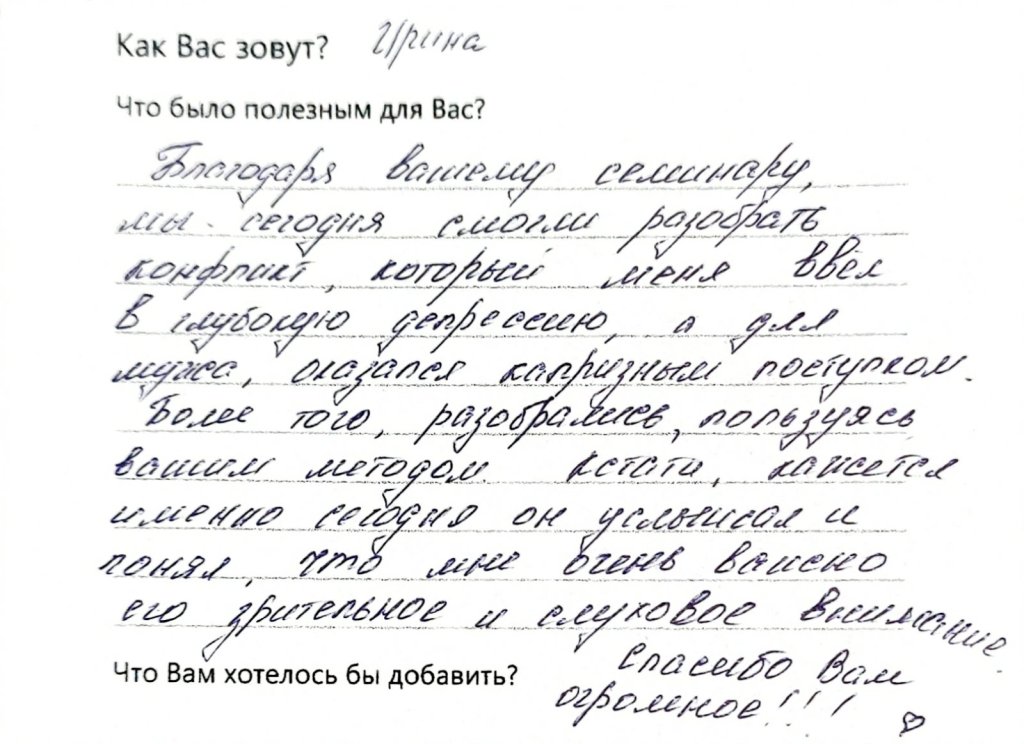 Как Вас зовут? Ирина
Что было полезным для Вас?
Благодаря вашему семинару,
мы сегодня смогли разобрать
конфликт, который меня ввёл
в глубокую депрессию, а для
мужа, оказался капризным поступком.
Более того, разобрались, пользуясь
вашим методом. Кстати, кажется
именно сегодня он услышал и
понял, что мне очень важно
его зрительное и слуховое внимание.
Что Вам хотелось бы добавить? Спасибо Вам
огромное!!!